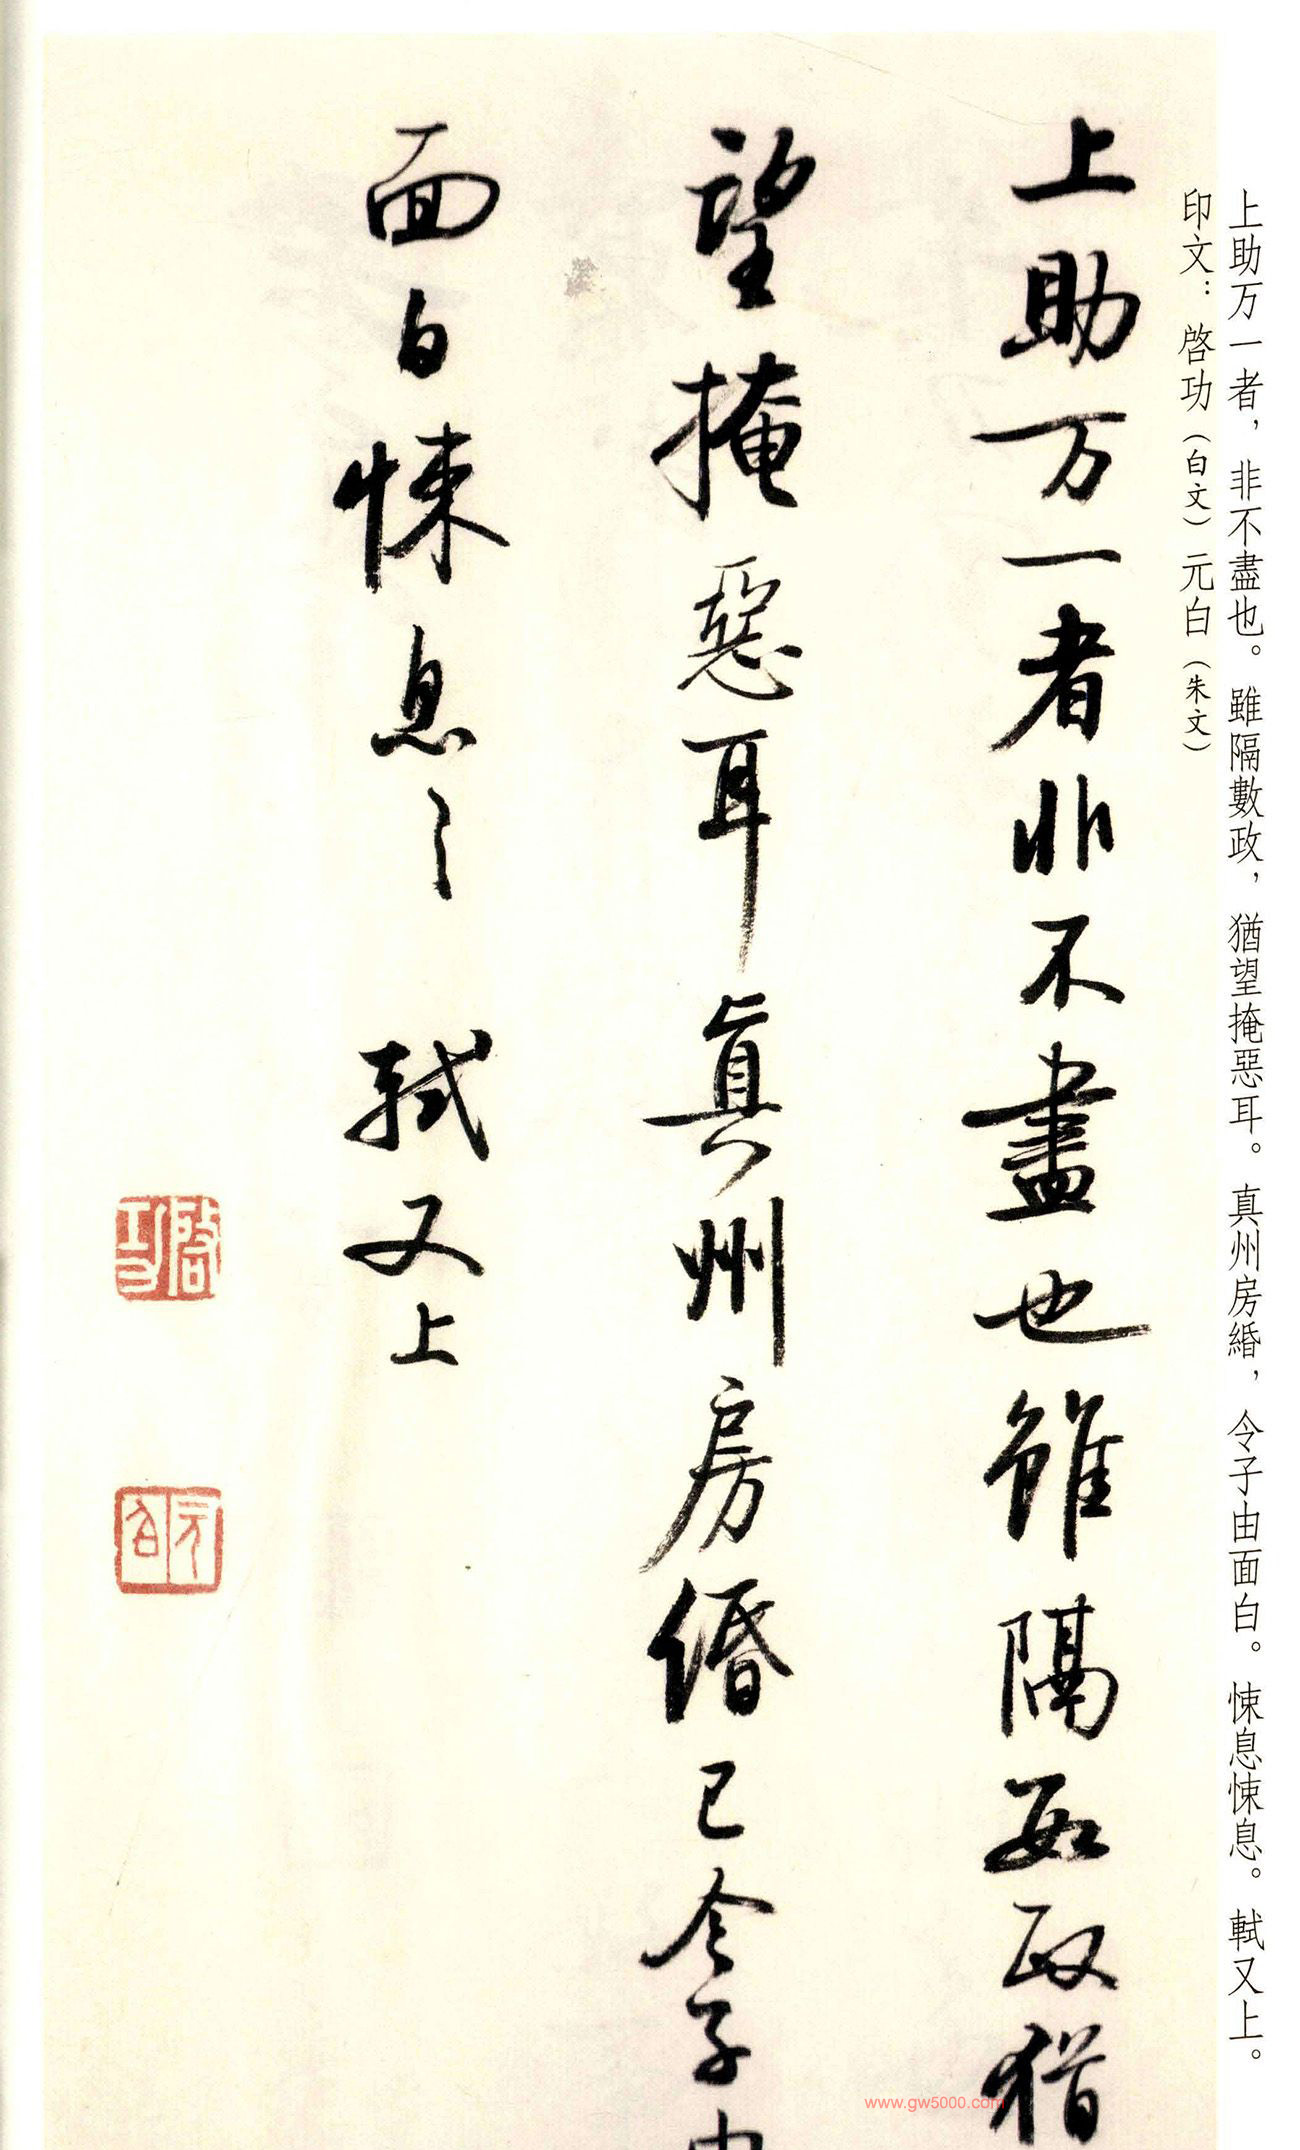 上助万一者，非不盡也。雖隔數政，猶望掩惡耳。真州房緡，令子由面白。悚息悚息。軾又上。
印文：啓功（白文）元白（朱文）
上助万一者非不盡也雖隔數政猶
望掩惡耳真州房緡已令子由
面白悚息〻軾又上
啓功
元白
www.gw5000.com